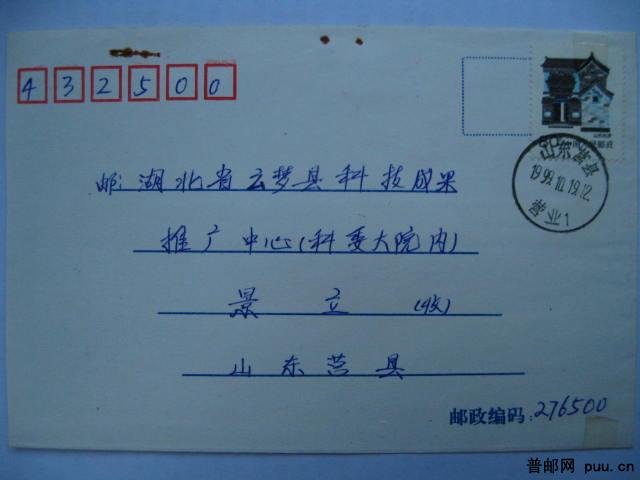 432500
邮:湖北省云梦县科技成果
推广中心(科委大院内)
景 立 (收)
山东莒县
邮政编码:276500
山东莒县
1999.10.19.12
营业1
普邮网 puu.cn